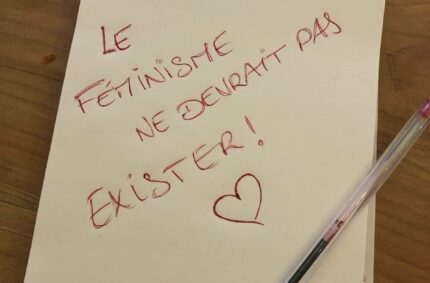 LE
FÉMINISME
NE DEVRAIT PAS
EXISTER!